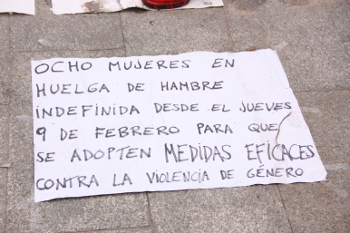 OCHO MUJERES EN
HUELGA DE HAMBRE
INDEFINIDA DESDE EL JUEVES
9 DE FEBRERO PARA QUE
SE ADOPTEN MEDIDAS EFICACES
CONTRA LA VIOLENCIA DE GÉNERO